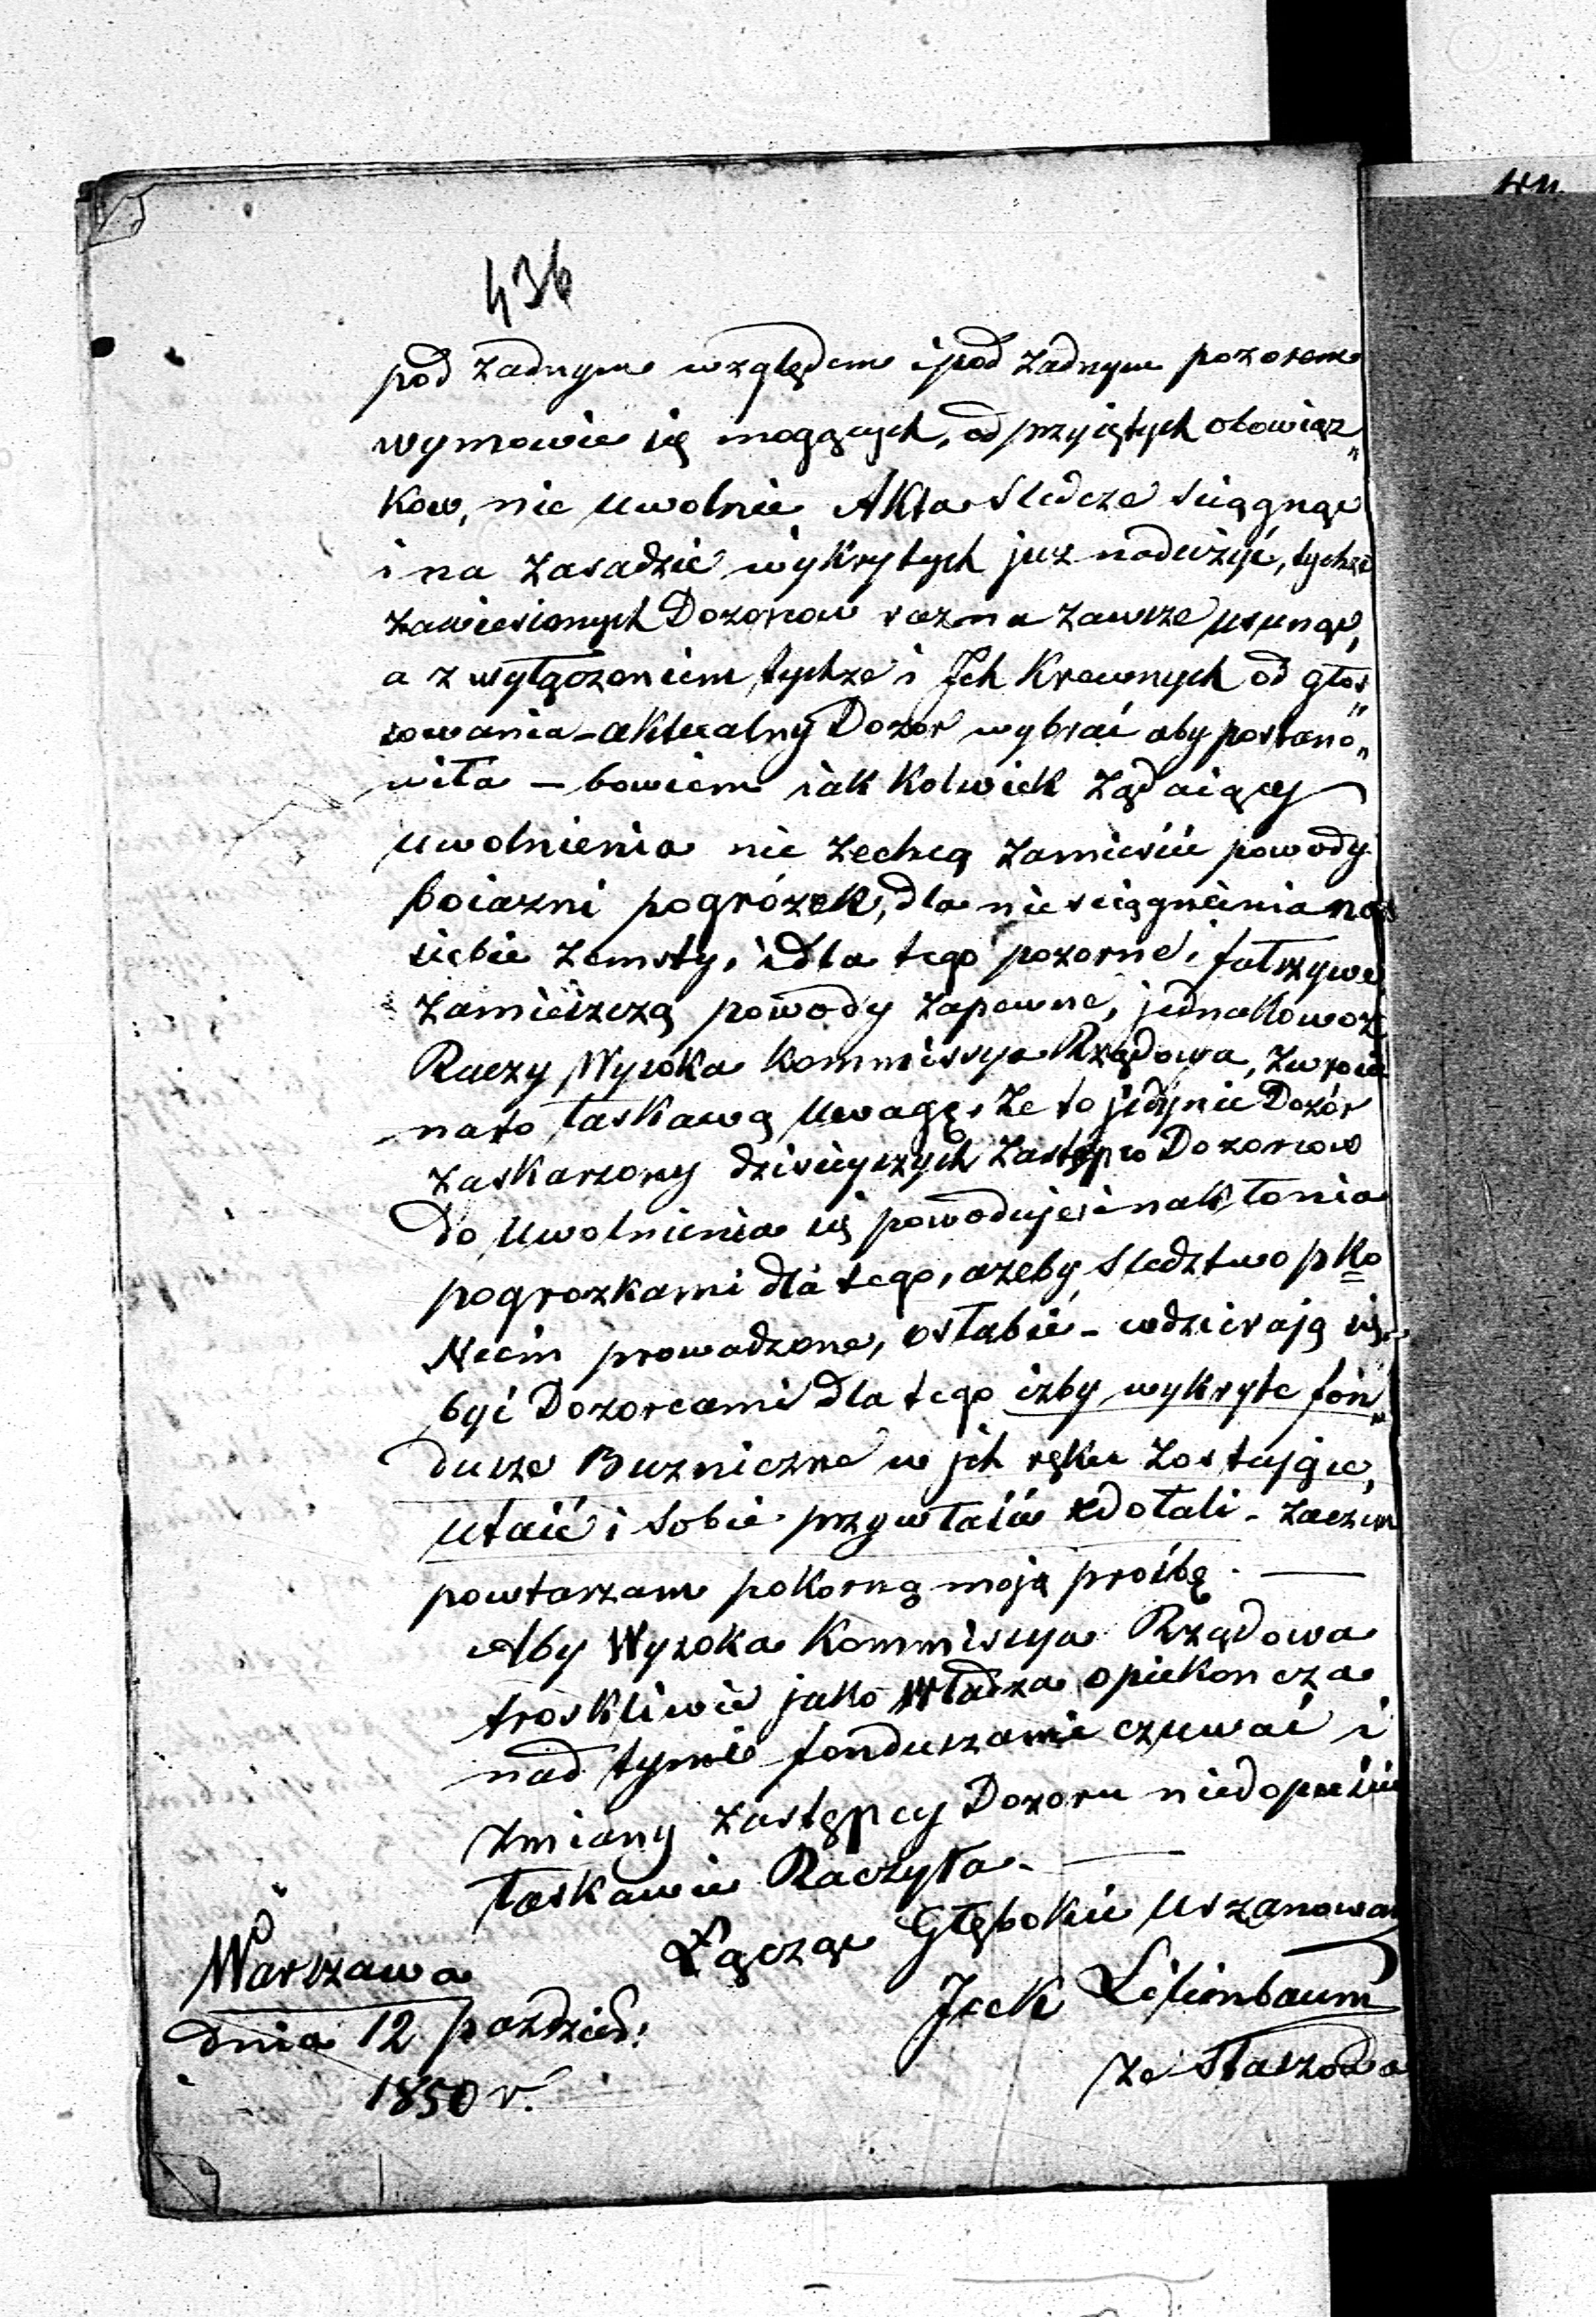 436
pod żadnym względem i pod żadnym pozorem
wymowić się mogących, od przyiętych obowiąz„
kow, nie uwolnić Akta Sledcze sciągnąć
i na zasadzie wykrytych juz nadużyć, tychże
zawiesionych Dozorow raz na zawsze usunąć,
a z wyłączeniem tychze i Jch Krewnych od głos„
sowania - aktualny Dozór wybrać aby postano„
wiła – bowiem iak kolwiek żądaiący
uwolnienia nie zechcą zamieścić powody
boiazni pogrózek, dla nie sciągnienia na
siebie zemsty, i dla tego pozorne i fałszywe
zamieiszczą powody zapewne, jednakowoż
Raczy Wysoka Kommissya Rządowa, zwrocić
na to łaskawą uwagę, że to jedynie Dozór
zaskarzony dzisieyszych Zastępco Dozorcow
do uwolnienia się powoduje i nakłania
pogrozkami dla tego, azeby Sledztwo pko
Nim prowadzone, osłabić - wdzierają się
być Dozorcami dla tego izby wykryte fon„
dusze Buzniczne w jch ręku zostające,
utaić i sobie przywłaścić zdołali - zaczem
powtarzam pokorną moją prośbę. —
Aby Wysoka Kommissya Rządowa
troskliwie jako Władza opiekończa
nad tymi fonduszami czuwać i
zmiany zastępcy Dozoru niedopuścić
łaskawie Raczyła. —
Łącząc Głębokie uszanowan
Jcek Lilienbaum
ze Staszowa
Warszawa
dnia 12 paździer:
1850 r.